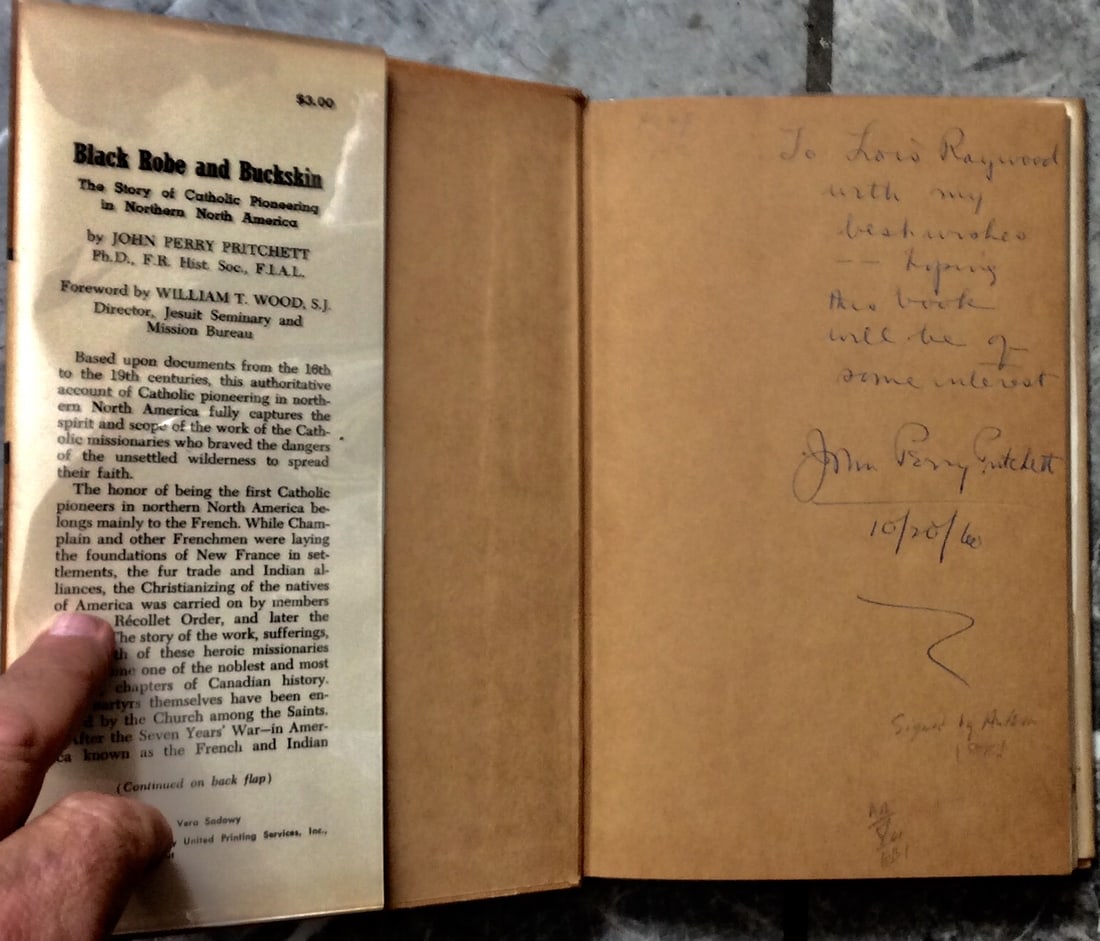 $3.00
Black Robe and Buckskin
The Story of Catholic Pioneering
in Northern North America
by JOHN PERRY PRITCHETT
Ph.D., F.R. Hist. Soc., F.I.A.L.
Foreword by WILLIAM T. WOOD, S.J.
Director, Jesuit Seminary and
Mission Bureau
Based upon documents from the 16th
to the 19th centuries, this authoritative
account of Catholic pioneering in north-
ern North America fully captures the
spirit and scope of the work of the Cath-
olic missionaries who braved the dangers
of the unsettled wilderness to spread
their faith.
The honor of being the first Catholic
pioneers in northern North America be-
longs mainly to the French. While Cham-
plain and other Frenchmen were laying
the foundations of New France in set-
tlements, the fur trade and Indian al-
liances, the Christianizing of the natives
of America was carried on by members
Récollet Order, and later the
The story of the work, sufferings,
of these heroic missionaries
one of the noblest and most
chapters of Canadian history.
themselves have been en-
by the Church among the Saints.
After the Seven Years' War—in Amer-
ca known as the French and Indian
(Continued on back flap)
Vera Sadowy
United Printing Services, Inc.,
To Lois Raywood
with my
best wishes
-- hoping
this book
will be of
some interest
John Perry Pritchett
10/20/60
Signed by Author